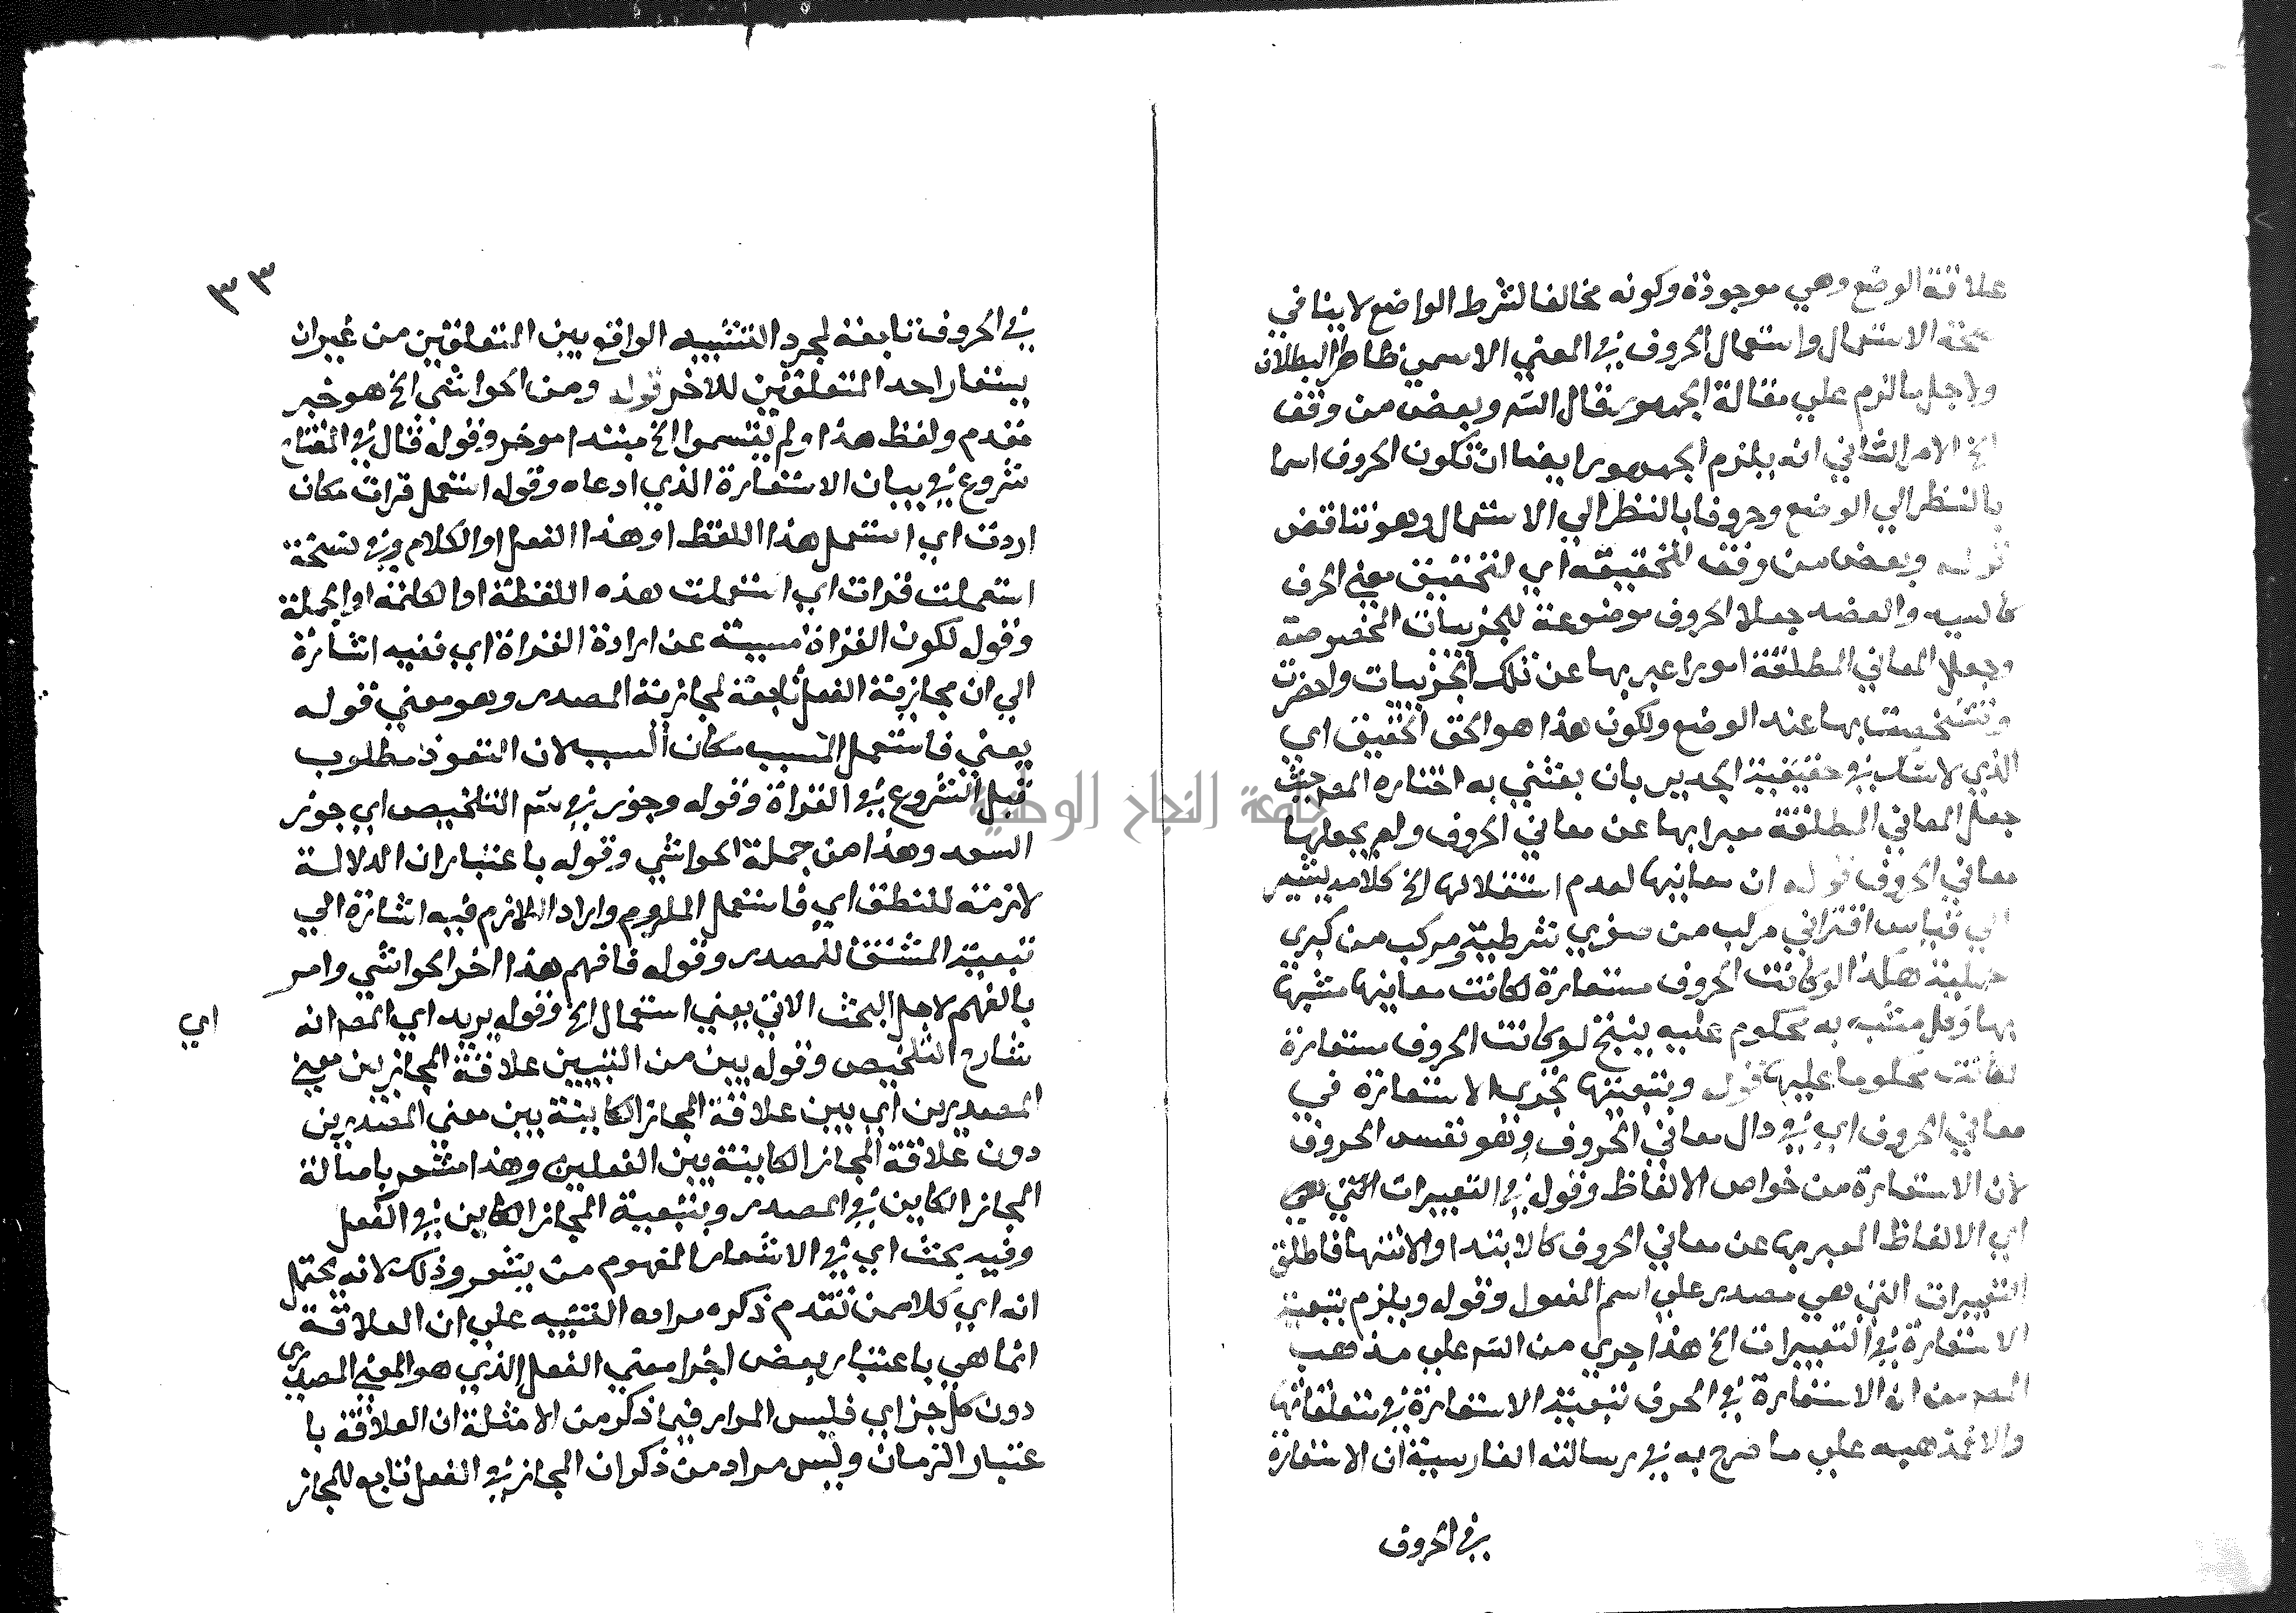 علاقة الوضع وهي موجودة وكونه مخالفا لشرط الواضع لا ينافي
صحة الاستعمال واستعمال الحروف في المعني الاسمي ظاهر البطلان
ولاجل ما لزم علي مقالة الجمهور قال الشـ وبعض من وقف
الخ الامر الثاني انه يلزم الجمهور ايضا ان تكون الحروف اسما
بالنظر الي الوضع وحروفا بالنظر الي الاستعمال وهو تناقض
قوله وبعض من وفق للتحقيق اي لتحقيق معني الحرف
كالسيد والعضد جعلا الحروف موضوعة للجزييات المخصوصة
وجعلا المعاني المطلقة امورا عبر بها عن تلك الجزييات واحضرت
وتشخصت بها عند الوضع ولكون هذا هو الحق الحقيق اي
الذي لا شك في حقيقية الجدير بان يعتني به اختاره المص حيث
جعل المعاني المطلقة معبرا بها عن معاني الحروف ولم يجعلها
معاني الحروف قوله ان معانيها لعدم استقلالها الخ كلامه يشير
الي قياس اقتراني مركب من صغري شرطية ومركب من كبري
حملية هكذا لو كانت الحروف مستعارة لكانت معانيها مشبها
بها وكل مشبه به محكوم عليه ينتج لو كانت الحروف مستعارة
لكانت محكوما عليها قوله وبتبعيتها تجري الاستعارة في
معاني الحروف اي في دال معاني الحروف وهو نفس الحروف
لان الاستعارة من خواص الالفاظ وقوله في التعبيرات التي هي
اي الالفاظ المعبر بها عن معاني الحروف كالابتدا والانتها فاطلق
التعبيرات التي هي مصدر علي اسم المفعول وقوله ويلزم بتبعية
الاستعارة في التعبيرات الخ هذا جري من الشـ علي مذهب
المصـ من ان الاستعارة في الحرف تبعية الاستعارة في متعلقاتها
والا فمذهبه علي ما صرح به في رسالته الفارسية ان الاستعارة
في الحروف
٣٣
في الحروف تابعة لمجرد التشبيه الواقع بين المتعلقين من غير ان
يستعار احد المتعلقين للاخر قوله ومن الحواشي الخ هو خبر
مقدم ولفظ هذا ولم يقسموا الخ مبتدا موخر وقوله قال في المفتاح
شروع في بيان الاستعارة الذي ادعاه وقوله استعمل قرات مكان
اردت اي استعمل هذا اللفظ او هذا الفعل او الكلام وفي نسخة
استعملت قرات اي استعملت هذه اللفظة او الكلمة او الجملة
وقوله لكون القراة مسببة عن ارادة القراة اي ففيه اشارة
الي ان مجازية الفعل تابعة لمجازية المصدر وهو معني قوله
يعني فاستعمل المسبب مكان السبب لان التعوذ مطلوب
قبل الشروع في القراة وقوله وجوز في شـ التلخيص اي جوز
السعد وهذا من جملة الحواشي وقوله باعتبار ان الدلالة
لازمة للنطق اي فاستعمل الملزوم واراد اللازم فيه اشارة الي
تبعية المشتق للمصدر وقوله فافهم هذا اخر الحواشي وامر
بالفهم لاجل البحث الاتي يعني استعمال الخ وقوله يريد اي المصـ انه
اي
شارح التلخيص وقوله بين من التبيين علاقة المجاز بين معني
المصدرين اي بين علاقة المجاز الكاينة بين معني المصدرين
دون علاقة المجاز الكاينة بين الفعلين وهذا مشعر باصالة
المجاز الكاين في المصدر وبتبعية المجاز الكاين في الفعل
وفيه بحث اي في الاشعار المفهوم من يشعر وذلك لانه يحتمل
انه اي كلا ممن تقدم ذكره مراده التنبيه علي ان العلاقة
انما هي باعتبار بعض اجزا معني الفعل الذي هو المعني المصدري
دون كل جز اي فليس المراد فيما ذكر من الامثلة ان العلاقة با
عتبار الزمان وليس مراد من ذكر ان المجاز في الفعل تابع للمجاز
جامعة النجاح الوطنية